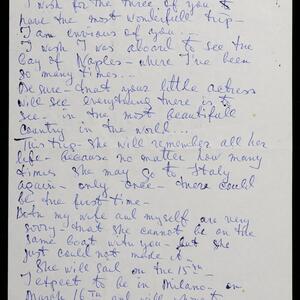 I wish for the three of you to
have the most wonderfull trip-
I am envious of you...
I wish I was aboard to see the
Bay of Naples - where I've been
so many times...
Be sure - that your little actress
will see everything there is to
see - in the most beautifull
country in the world...
This trip - she will remember all her
life - because no matter how many
times she may go to Italy
again - only once - there could
be the first time -
Both my wife and myself are very
sorry - that she cannot be on the
same boat with you - but she
just could not made it -
She will sail on the 15th -
I expect to be in Milano - on
March 16th and will